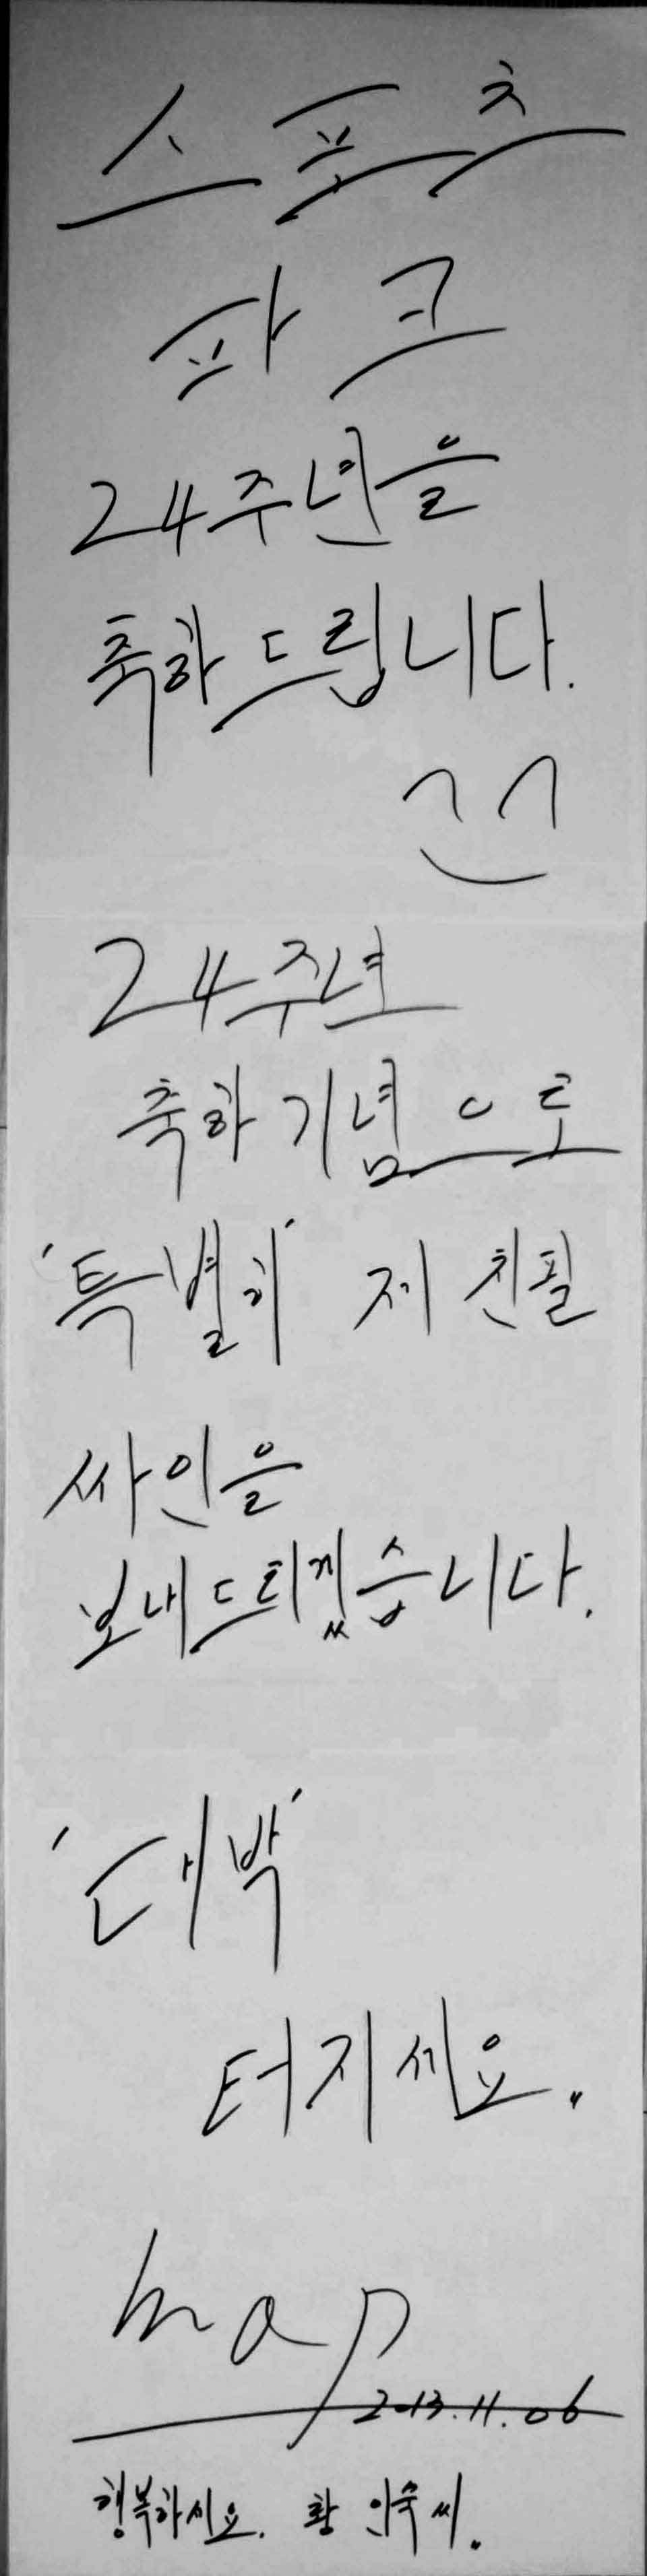 스포츠
파크
24주년을
축하드립니다.
24주년
축하기념으로
'특별히' 제 친필
싸인을
보내드리겠습니다.
'대박'
터지세요.
map
2013.11.06
행복하세요. 황인숙씨.